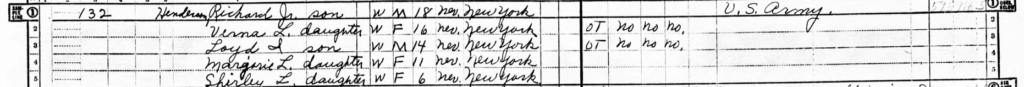 1 132 Henderson Richard Jr. son W M 18 nev. New York U.S. Army. 1
2 Verna L. daughter W F 16 nev. New York OT no no no. 2
3 Loyd I son W M 14 nev. New York OT no no no. 3
4 Margorie L. daughter W F 11 nev. New York 4
5 Shirley L. daughter W F 6 nev. New York 5